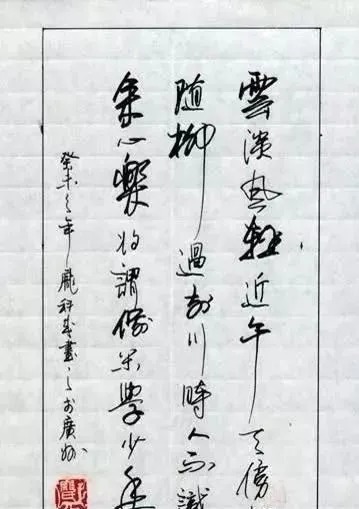 雲淡風輕近午天傍
随柳過前川時人不識
余心樂将謂偷閑學少年
癸未之年龐科書之於廣州